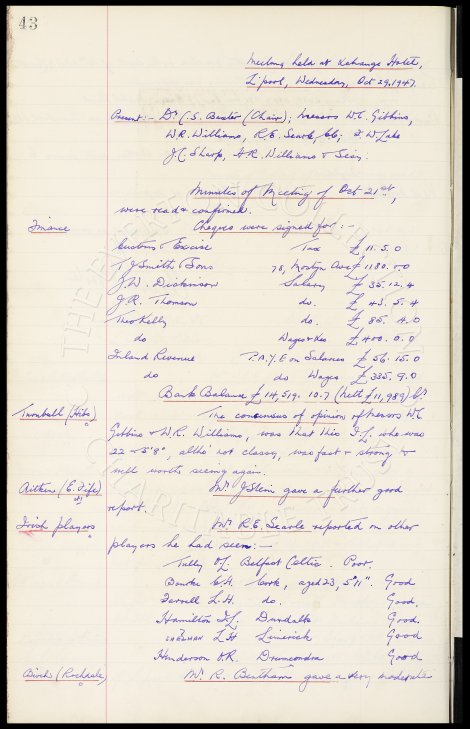 43
Meeting held at Exchange Hotel,
L'pool, Wednesday, Oct 29, 1947.
Present:- Dr C.S. Baxter (Chair); Messrs W.C. Gibbins,
W.R. Williams, R.E. Searle, T.W. Lake
J.C. Sharp, H.R. Williams & Secy.
Minutes of Meeting of Oct 21st,
were read & confirmed.
Finance Cheques were signed for:-
Customs & Excise Tax £ 11. 5. 0
T J Smith & Sons 78, Mostyn Ave £ 1180. 0. 0
J.W. Dickinson Salary £ 35. 12. 4
J.R. Thomson do. £ 43. 5. 4
Theo Kelly do. £ 85. 4. 0
do Wages & Exs £ 400. 0. 0
Inland Revenue P.A.Y.E on Salaries £ 56. 15. 0
do do Wages £ 335. 9. 0
Bank Balance £ 14,519. 10. 7 (Nett £ 11,989) Cr.
Turnbull (Hibs) The concensus of opinion of Messrs WC
Gibbins & W.R. Williams, was that this I.L. who was
22 - 5'8", altho' not classy, was fast & strong &
well worth seeing again.
Aitken (E. Fife) Mr J Stein gave a further good
report.
Irish players Mr R.E. Searle reported on other
players he had seen:-
Tully O.L. Belfast Celtic. Poor.
Bourke C.H. Cork, aged 23, 5'11". Good
Farrell L.H. do. Good.
Hamilton I.L. Dundalk Good.
L.H. Limerick Good
Henderson O.R. Drumcondra Good
Birch (Rochdale) Mr R. Bentham gave a very moderate